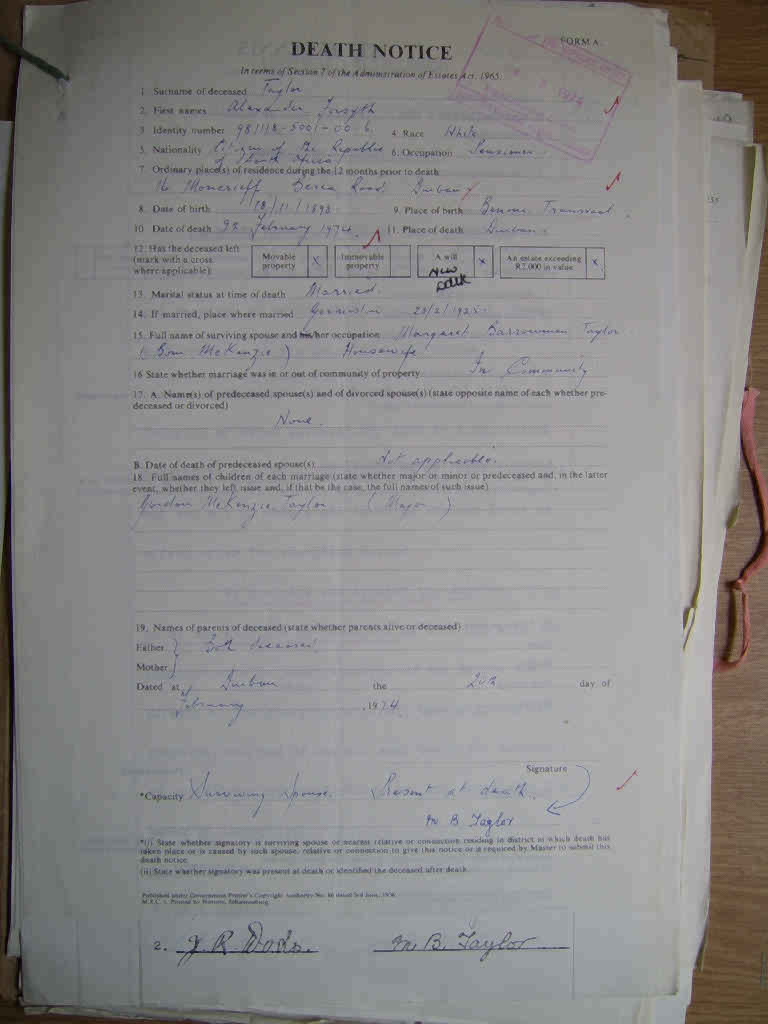 FORM A.
DEATH NOTICE
In terms of Section 7 of the Administration of Estates Act, 1965.
1. Surname of deceased Taylor
2. First names Alexander Forsyth
3. Identity number 4. Race White
5. Nationality Citizen of the Republic of South Africa 6. Occupation Pensioner
7. Ordinary place(s) of residence during the 12 months prior to death
16 Moncrieff Berea Road Durban
8. Date of birth 18/11/1898 9. Place of birth Benoni Transvaal
10. Date of death 9th February 1974. 11. Place of death Durban
12. Has the deceased left (mark with a cross where applicable): Movable property X Immovable property A will X An estate exceeding R2,000 in value X
13. Marital status at time of death Married.
14. If married, place where married Germiston 1925
15. Full name of surviving spouse and his/her occupation Margaret Barrowman Taylor
(Born McKenzie) Housewife
16 State whether marriage was in or out of community of property In Community
17. A. Name(s) of predeceased spouse(s) and of divorced spouse(s) (state opposite name of each whether pre-
deceased or divorced)
None.
B. Date of death of predeceased spouse(s) Not applicable.
18. Full names of children of each marriage (state whether major or minor or predeceased and, in the latter
event, whether they left issue and, if that be the case, the full names of such issue)
Gordon McKenzie Taylor (Major)
19. Names of parents of deceased (state whether parents alive or deceased)
Father } Both deceased
Mother }
Dated at Durban the 20th day of
February 1974.
Signature
*Capacity Surviving Spouse. Present at death.
M B Taylor
*(i) State whether signatory is surviving spouse or nearest relative or connection residing in district in which death has
taken place or is caused by such spouse, relative or connection to give this notice or is required by Master to submit this
death notice.
(ii) State whether signatory was present at death or identified the deceased after death.
Published under Government Printer's Copyright Authority No.
2. M B Taylor